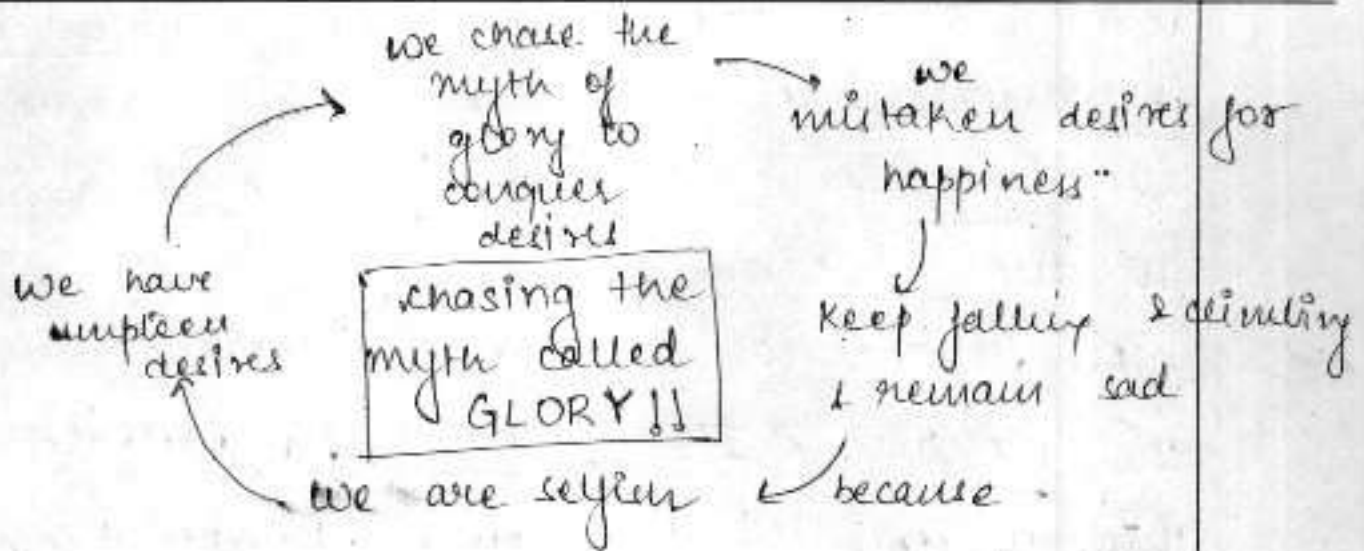 we chase the
myth of
glory to
conquer
desires
we
mistaken desires for
happiness"
keep falling & climbing
& remain sad
because
we are selfish
we have
umpteen
desires
chasing the
myth called
GLORY!!